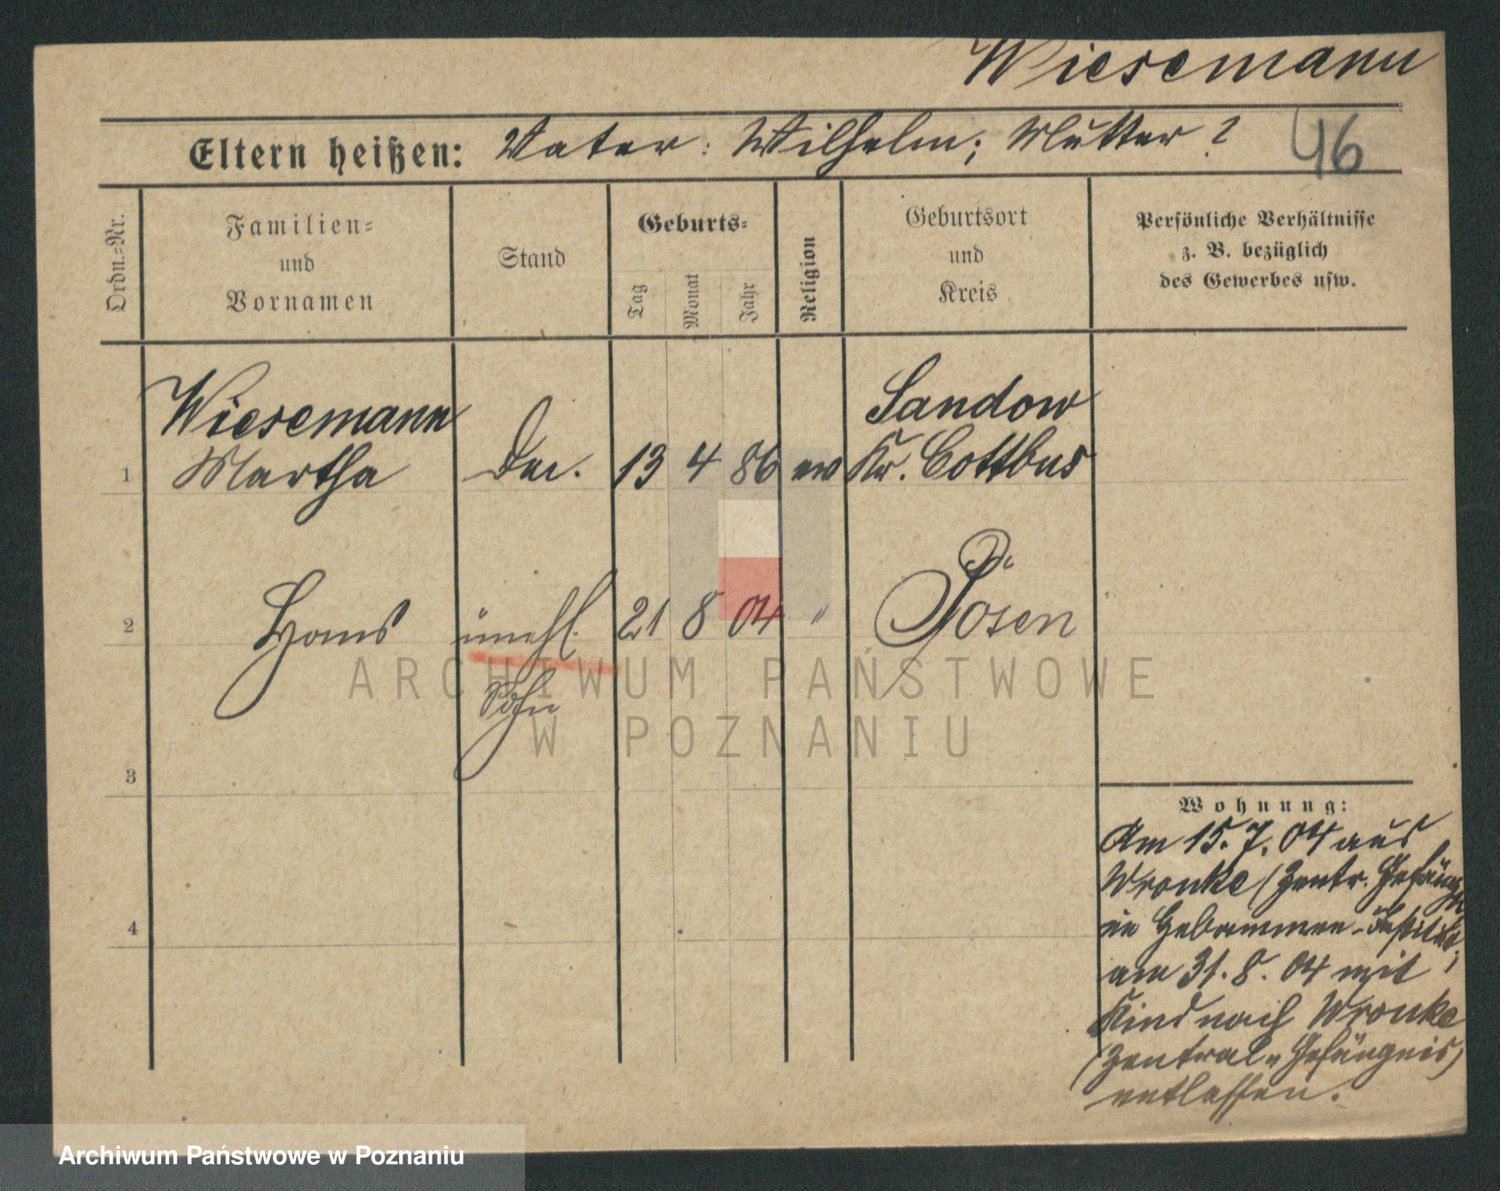 Wiesemann
Eltern heißen: Vater: Wilhelm; Mutter?
46
Ordn.=Nr.
Familien=
und
Vornamen
Stand
Geburts=
Tag
Monat
Jahr
Religion
Geburtsort
und
Kreis
Persönliche Verhältnisse
z. B. bezüglich
des Gewerbes usw.
Wiesemann
Martha
13 4 86 ev
Sandow
Kr. Cottbus
1
2
Hans
unehl.
Sohn
21 8 04 "
Posen
3
4
Wohnung:
Am 15. 7. 04 aus
Wronke (Zentr. Gefängn.
in Hebammen-Institut;
am 31. 8. 04 mit
Kind nach Wronke
(Zentral-Gefängnis)
entlassen.
ARCHIWUM PAŃSTWOWE
W POZNANIU
Archiwum Państwowe w Poznaniu